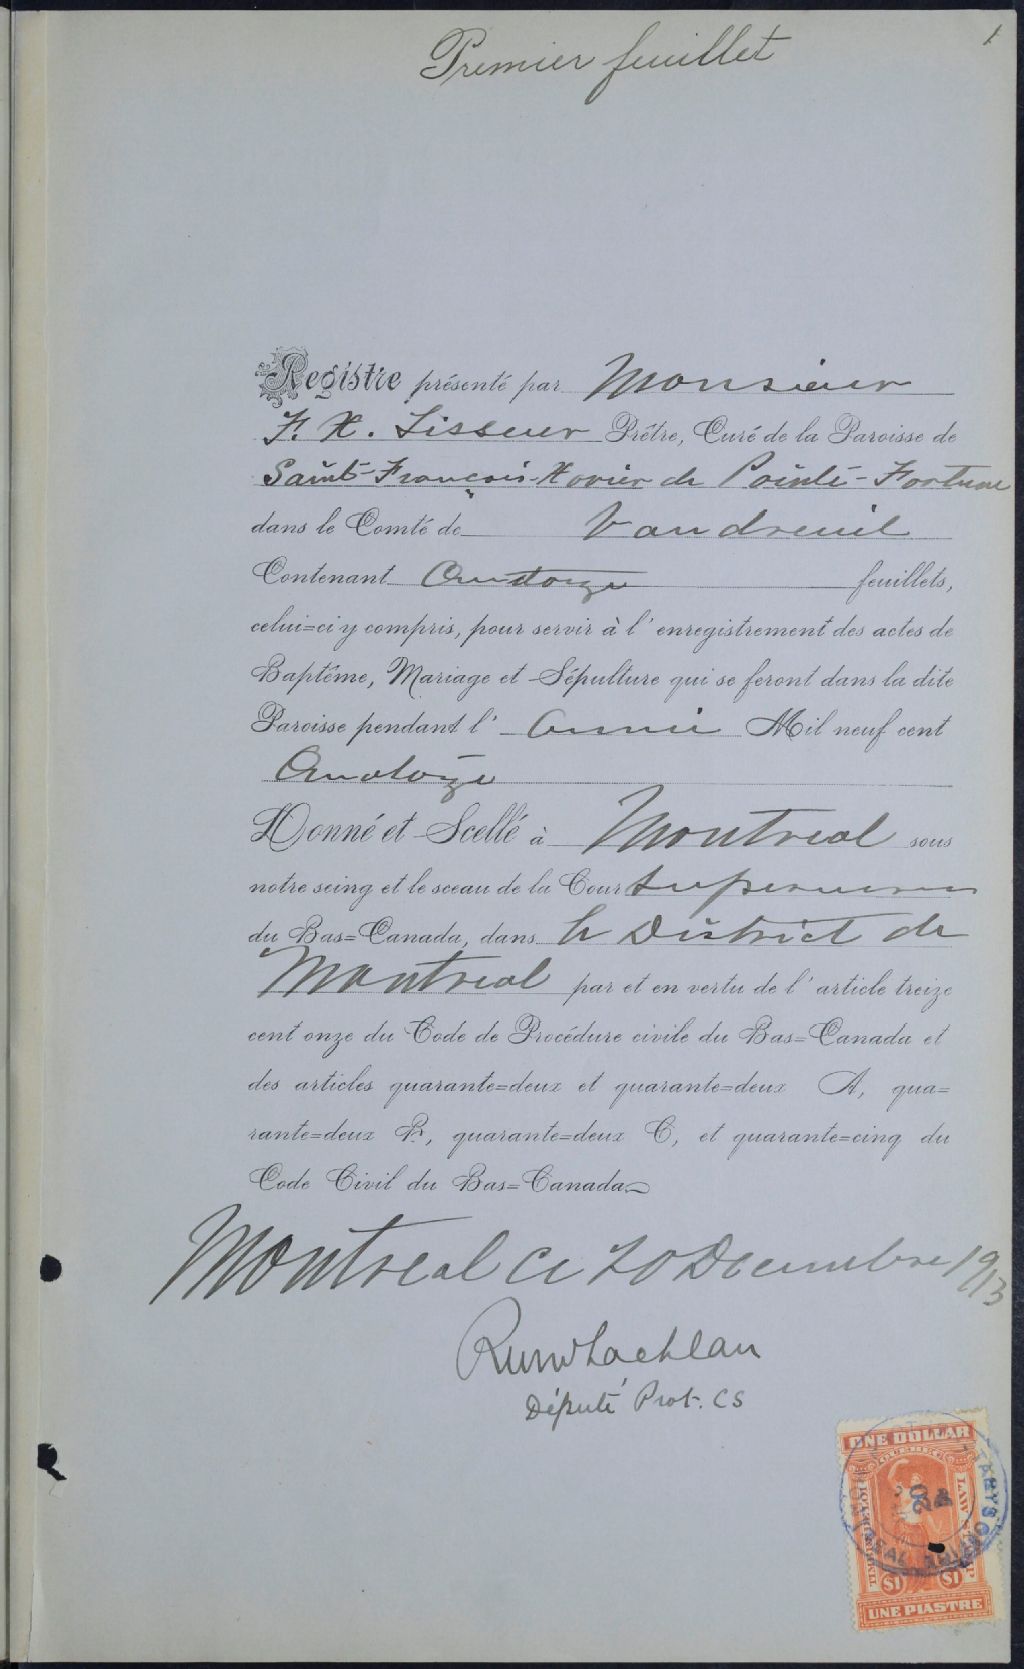 1
Premier feuillet
Registre présenté par Monsieur
F. X. Lisseur Prêtre, Curé de la Paroisse de
Saint-François-Xavier de Pointe-Fortune
dans le Comté de Vaudreuil
Contenant Quatorze feuillets,
celui=ci y compris, pour servir à l'enregistrement des actes de
Baptême, Mariage et Sépulture qui se feront dans la dite
Paroisse pendant l'année Mil neuf cent
Quatorze
Donné et Scellé à Montreal sous
notre seing et le sceau de la Cour Superieure
du Bas=Canada, dans le District de
Montreal par et en vertu de l'article treize
cent onze du Code de Procédure civile du Bas=Canada et
des articles quarante=deux et quarante=deux A, qua=
rante=deux B, quarante=deux C, et quarante=cinq du
Code Civil du Bas=Canada
Montreal ce 20 Decembre 1913
Député Prot. CS
ONE DOLLAR
QUEBEC
LAW STAMP
$1 $1
UNE PIASTRE